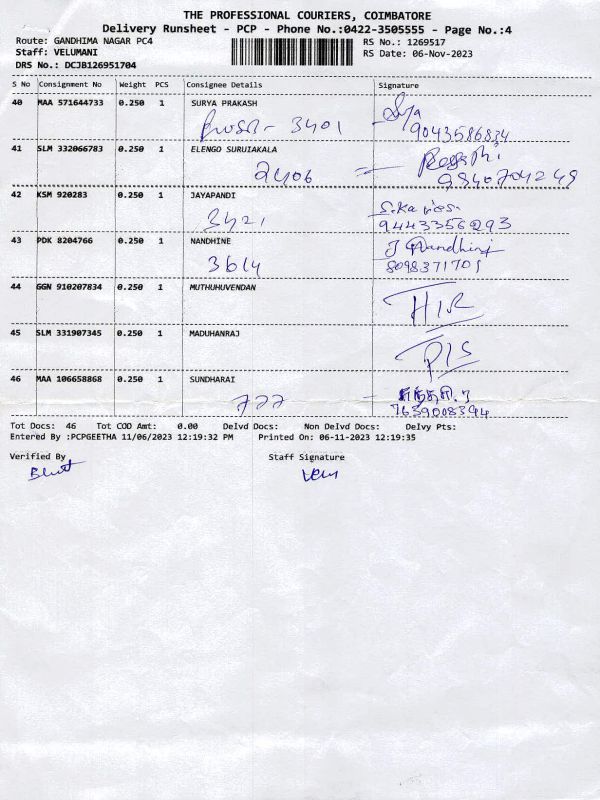 THE PROFESSIONAL COURIERS, COIMBATORE
Delivery Runsheet - PCP - Phone No.:0422-3505555 - Page No.:4
Route: GANDHIMA NAGAR PC4 RS No.: 1269517
Staff: VELUMANI RS Date: 06-Nov-2023
DRS No.: DCJB126951704
S No Consignment No Weight PCS Consignee Details Signature
40 MAA 571644733 0.250 1 SURYA PRAKASH
3401
9043586834
41 SLM 332066783 0.250 1 ELENGO SURUIAKALA
2406
9840704249
42 KSM 920283 0.250 1 JAYAPANDI
3421
9443356293
43 PDK 8204766 0.250 1 NANDHINE
3614 J Nandhini
8098371701
44 GGN 910207834 0.250 1 MUTHUHUVENDAN
45 SLM 331907345 0.250 1 MADUHANRAJ
46 MAA 106658868 0.250 1 SUNDHARAI
777
7639008394
Tot Docs: 46 Tot COD Amt: 0.00 Delvd Docs: Non Delvd Docs: Delvy Pts:
Entered By :PCPGEETHA 11/06/2023 12:19:32 PM Printed On: 06-11-2023 12:19:35
Verified By Staff Signature